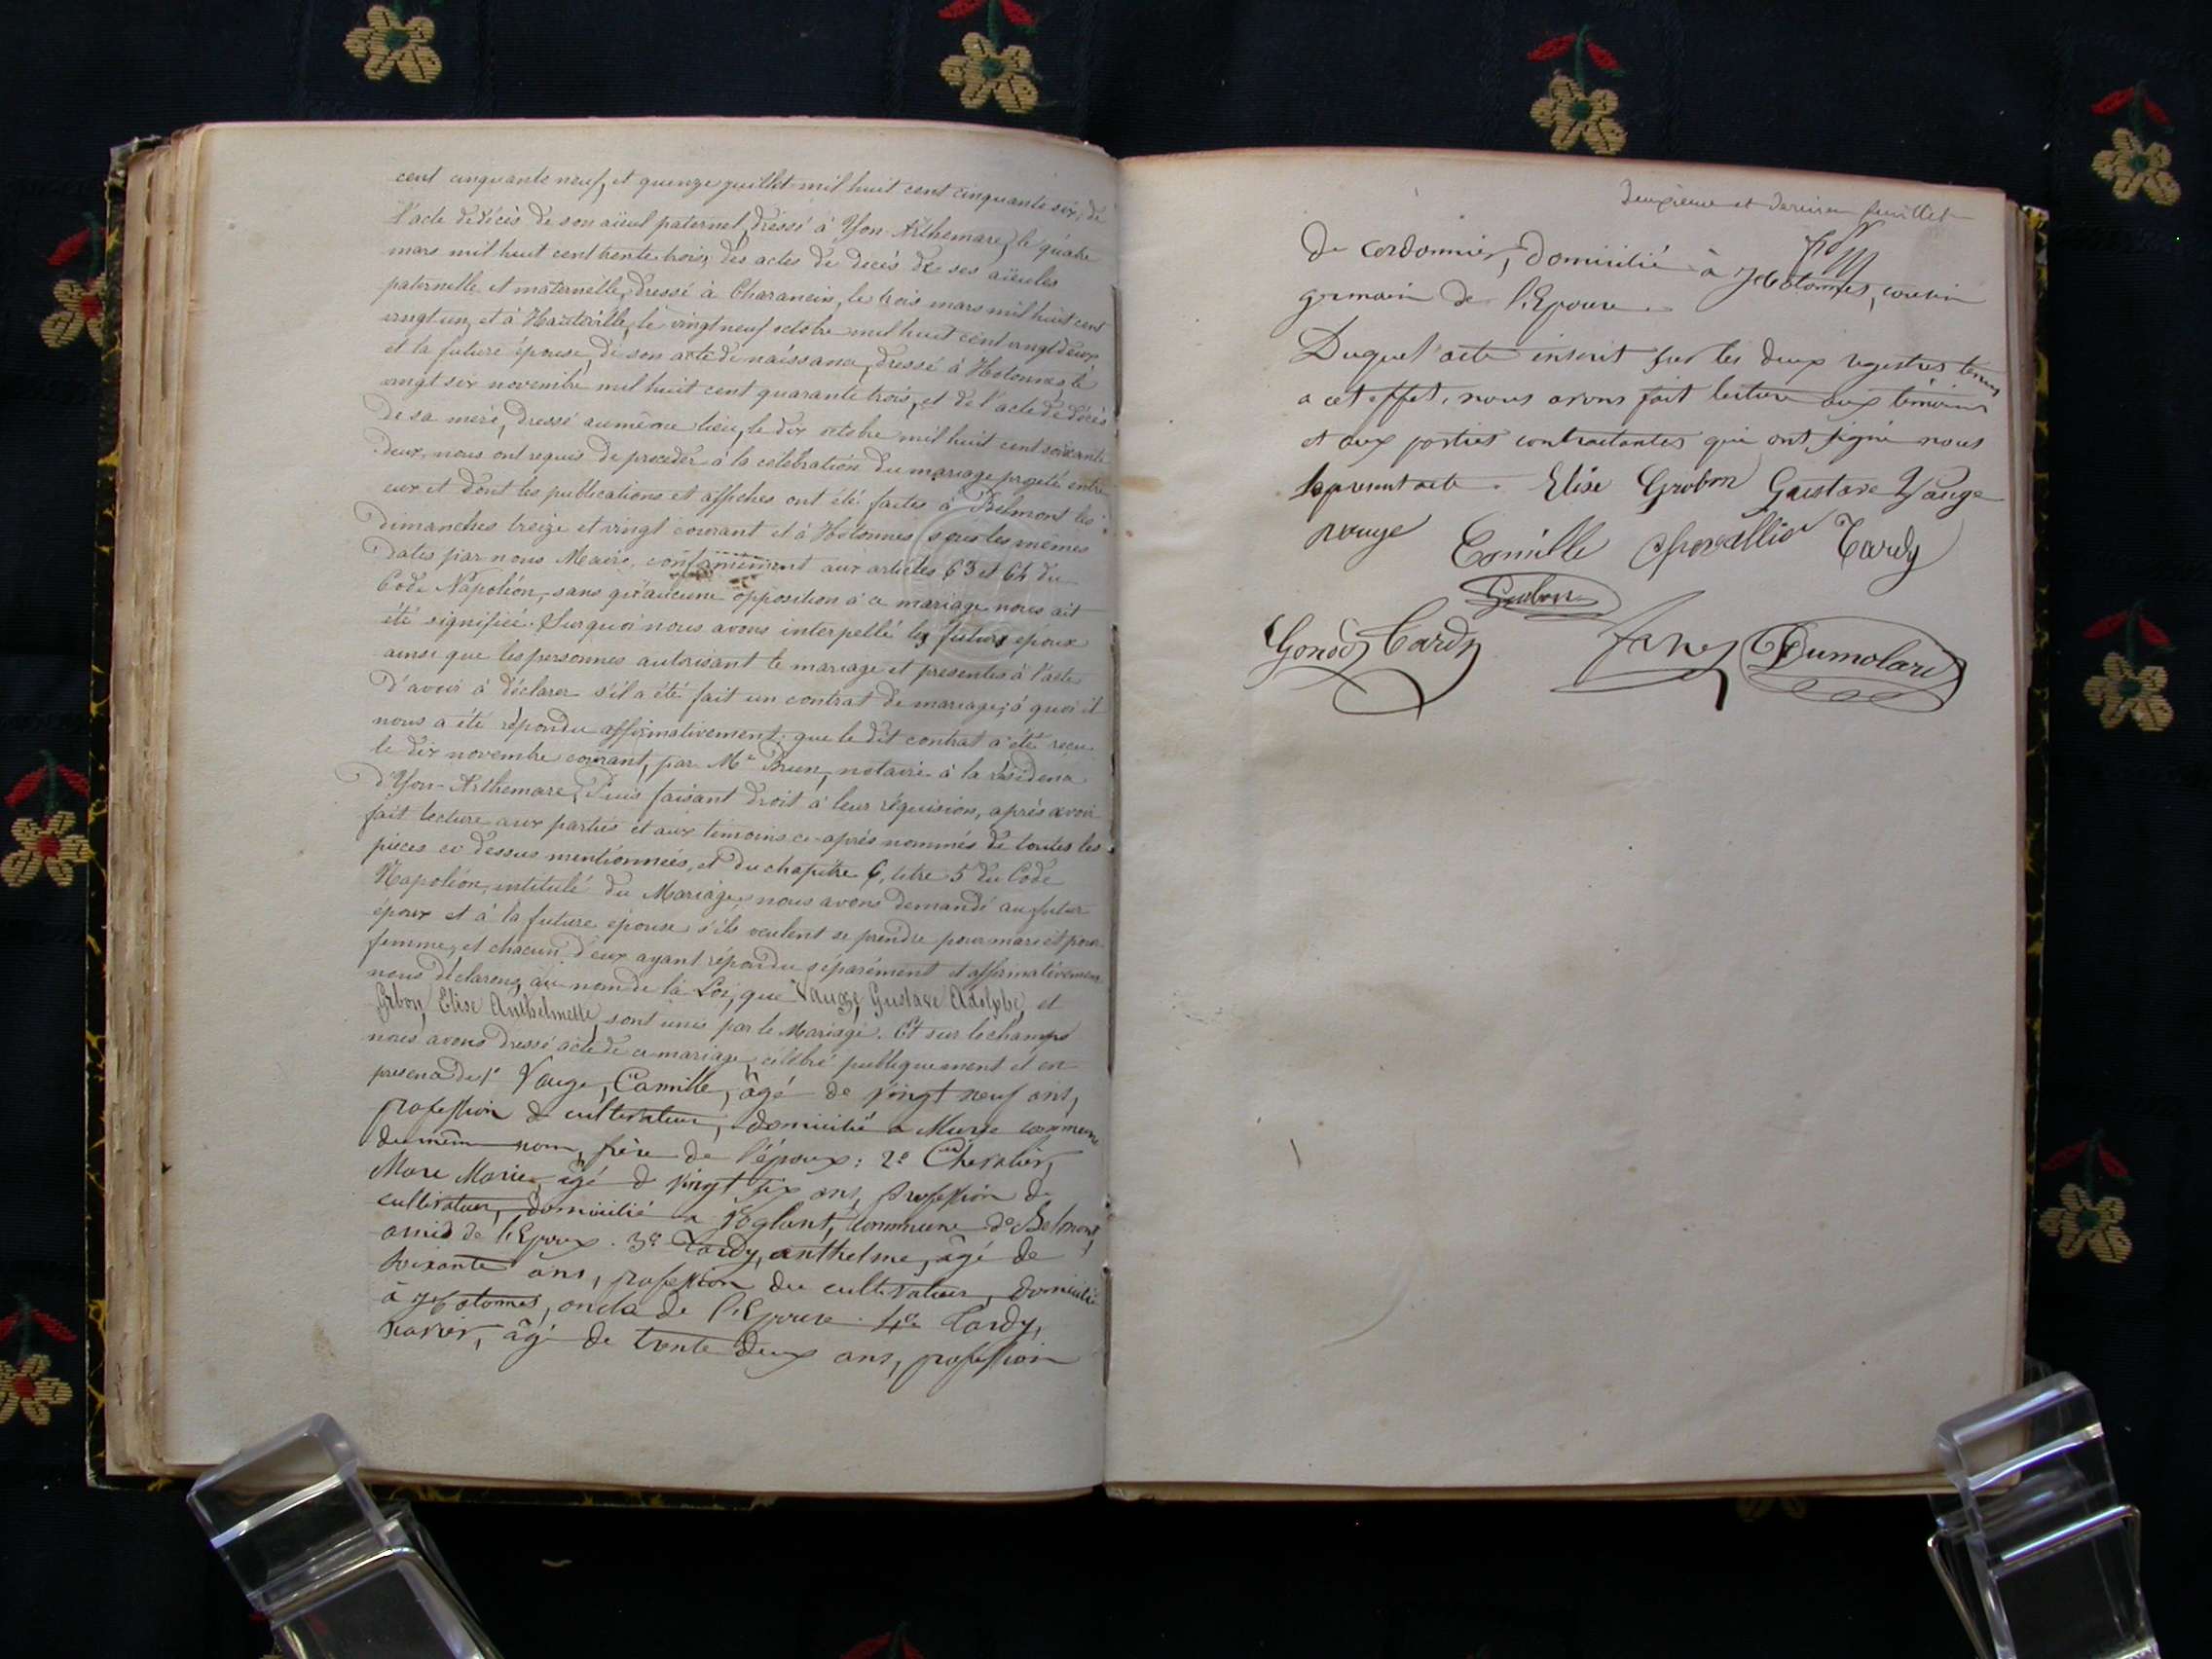 cent cinquante neuf, et quinze juillet mil huit cent cinquante six, de
l'acte de décès de son aïeul paternel, dressé à Yon-Arthemare, le quatre
mars mil huit cent trente trois, des actes de décès de ses aïeules
paternelle et maternelle, dressé à Charancin, le trois mars mil huit cent
vingt un, et à Hauteville, le vingt neuf octobre mil huit cent vingt deux
et la future épouse, de son acte de naissance, dressé à Hotonnes le
vingt six novembre mil huit cent quarante trois, et de l'acte de décès
de sa mère, dressé au même lieu, le dix octobre mil huit cent soixante
deux, nous ont requis de procéder à la célébration du mariage projeté entre
eux et dont les publications et affiches ont été faites à Belmont les
dimanches treize et vingt courant et à Hotonnes sous les mêmes
dates par nous Maire, conformément aux articles 63 et 64 du
Code Napoléon, sans qu'aucune opposition à ce mariage nous ait
été signifiée. Sur quoi nous avons interpellé les futurs époux
ainsi que les personnes autorisant le mariage et présentes à l'acte
d'avoir à déclarer s'il a été fait un contrat de mariage; à quoi il
nous a été répondu affirmativement: que le dit contrat a été reçu
le dix novembre courant, par Me Brun, notaire à la résidence
d'Yon-Arthemare, Puis faisant droit à leur réquision, après avoir
fait lecture aux parties et aux témoins ci-après nommés de toutes les
pièces ci dessus mentionnées, et du chapitre 6, titre 5 du Code
Napoléon, intitulé du Mariage, nous avons demandé au futur
époux et à la future épouse s'ils veulent se prendre pour mari et pour
femme, et chacun d'eux ayant répondu séparément et affirmativement
nous déclarons, au nom de la Loi, que Vauge, Gustave Adolphe, et
Grbon, Elise Anthelmette, sont unis par le Mariage. Et sur le champs
nous avons dressé acte de ce mariage, célébré publiquement et en
présence de 1° Vauge, Camille, âgé de vingt neuf ans,
profession de cultivateur, domicilié a Murge commune
du même nom, frère de l'époux: 2e Chevalier,
Marc Marie, âgé de vingt six ans, profession de
cultivateur, domicilié a commune de Belmont,
amis de l'Epoux. 3e Tardy, anthelme, âgé de
soixante ans, profession de cultivateur, domicilié
à Hotonnes, oncle de l'Epouse. 4e Tardy,
xavier, âgé de trente deux ans, profession
deuxième et dernier feuillet
de cordonnier, domicilié à Hotonnes, cousin
germain de l'Epouse.
Duquel acte inscrit sur les deux registres tenus
a cet effet, nous avons fait lecture aux témoins
et aux parties contractantes qui ont signé nous
le présent acte. Elise Grobon Gustave Vauge
vauge Camille Chevallier Tardy
Grobon
Gonod Tardy Dumolard